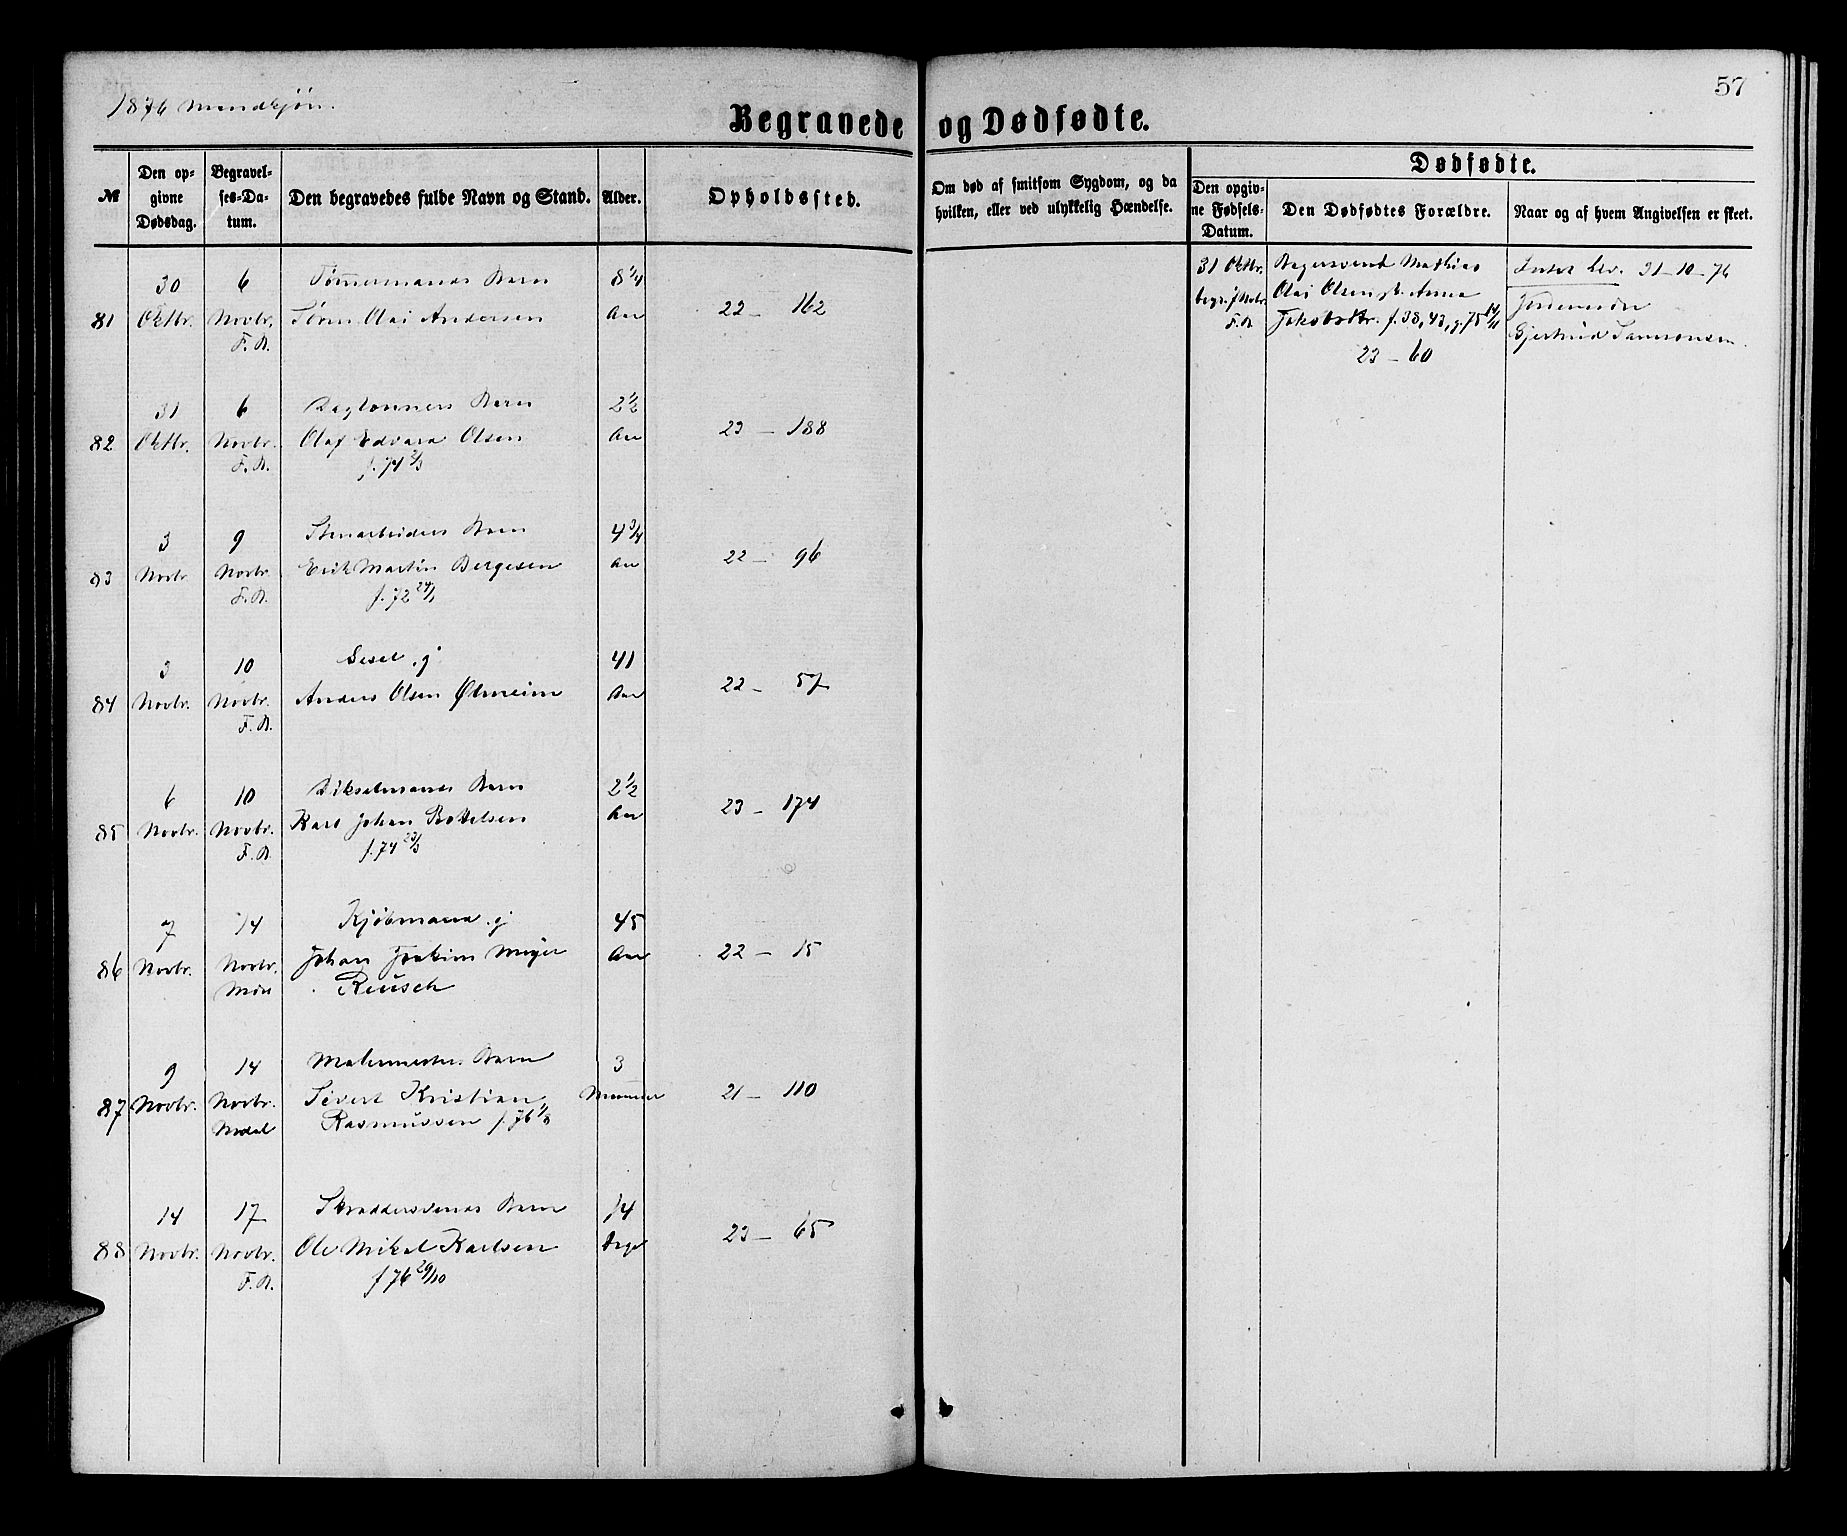 1876 Mandkjøn.
57
Begravede og Dødfødte.
№
Den op-
givne
Dødsdag.
Begravel-
ses-Da-
tum.
Den begravedes fulde Navn og Stand.
Alder.
Opholdssted.
Om død af smitsom Sygdom, og da
hvilken, eller ved ulykkelig Hændelse.
Dødfødte.
Den opgiv-
ne Fødsels-
Datum.
Den Dødfødtes Forældre.
Naar og af hvem Angivelsen er skeet.
81
30
Oktbr.
6
Novbr.
F. A.
Tømmermands Barn
Søren Olai Andersen
8 1/4
Aar
22 – 162
31 Oktbr.
begr. 7 Novbr.
F. A.
Bagersvend Mathias
Olai Olsen, Anna
f. 38, 43, g. 75
23 – 60
31-10-76
Jordemoder
Gjertrud
82
31
Oktbr.
6
Novbr.
F. A.
Daglønners Barn
Olaf Edvard Olsen
f. 74 2/3
2 1/2
Aar
23 – 188
83
3
Novbr.
9
Novbr.
F. A.
Stenarbeiders Barn
Erik Martin Bergesen
f. 72 24/1
4 3/4
Aar
22 – 96
84
3
Novbr.
10
Novbr.
F. A.
g.
Anders Olsen Ølmeim
41
Aar
22 – 57
85
6
Novbr.
10
Novbr.
F. A.
Barn
Karl Johan Bottelsen
f. 74 23/3
2 1/2
Aar
23 – 174
86
7
Novbr.
14
Novbr.
Kjøbmand g.
Johan Joakim Meyer
Reusch
45
Aar
22 – 15
87
9
Novbr.
14
Novbr.
Malermesters Barn
Sivert Kristian
Rasmussen f. 76 1/8
3
Maaneder
21 – 110
88
14
Novbr.
17
Novbr.
F. A.
Skræddersvends Barn
Ole Mikal Karlsen
f 76 29/10
14
Dage
23 – 65